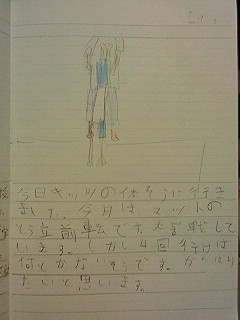 今日キッツの体そうに行き
ました。今月はマットの
とう立前転です。大苦戦して
います。しかし4回行けば
何とかなりそうです。がんばり
たいと思います。